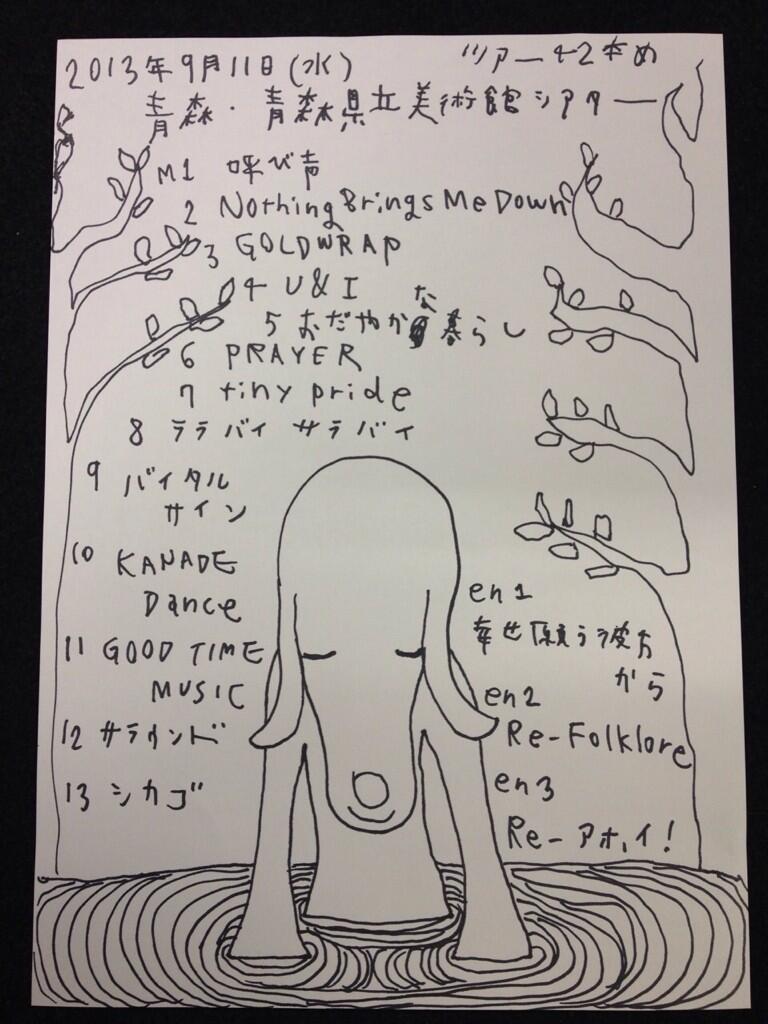 2013年9月11日(水)
ツアー42本め
青森・青森県立美術館シアター
M1 呼び声
2 Nothing Brings Me Down
3 GOLDWRAP
4 U&I
5 おだやかな暮らし
6 PRAYER
7 tiny pride
8 ララバイ サラバイ
9 バイタル
サイン
10 KANADE
Dance
11 GOOD TIME
MUSIC
12 サラウンド
13 シカゴ
en1
幸せ願う彼方
から
en2
Re-Folklore
en3
Re-アホイ!